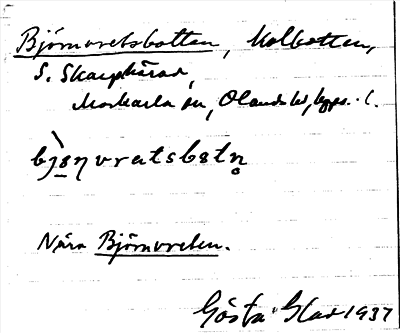 Björnvretsbotten, Molbotten,
S. Skarphärad,
Markarla sn, Olands hd, Upps. l.
bjønvratsbotn̥
Nära Björnvreten.
Gösta Glad 1937